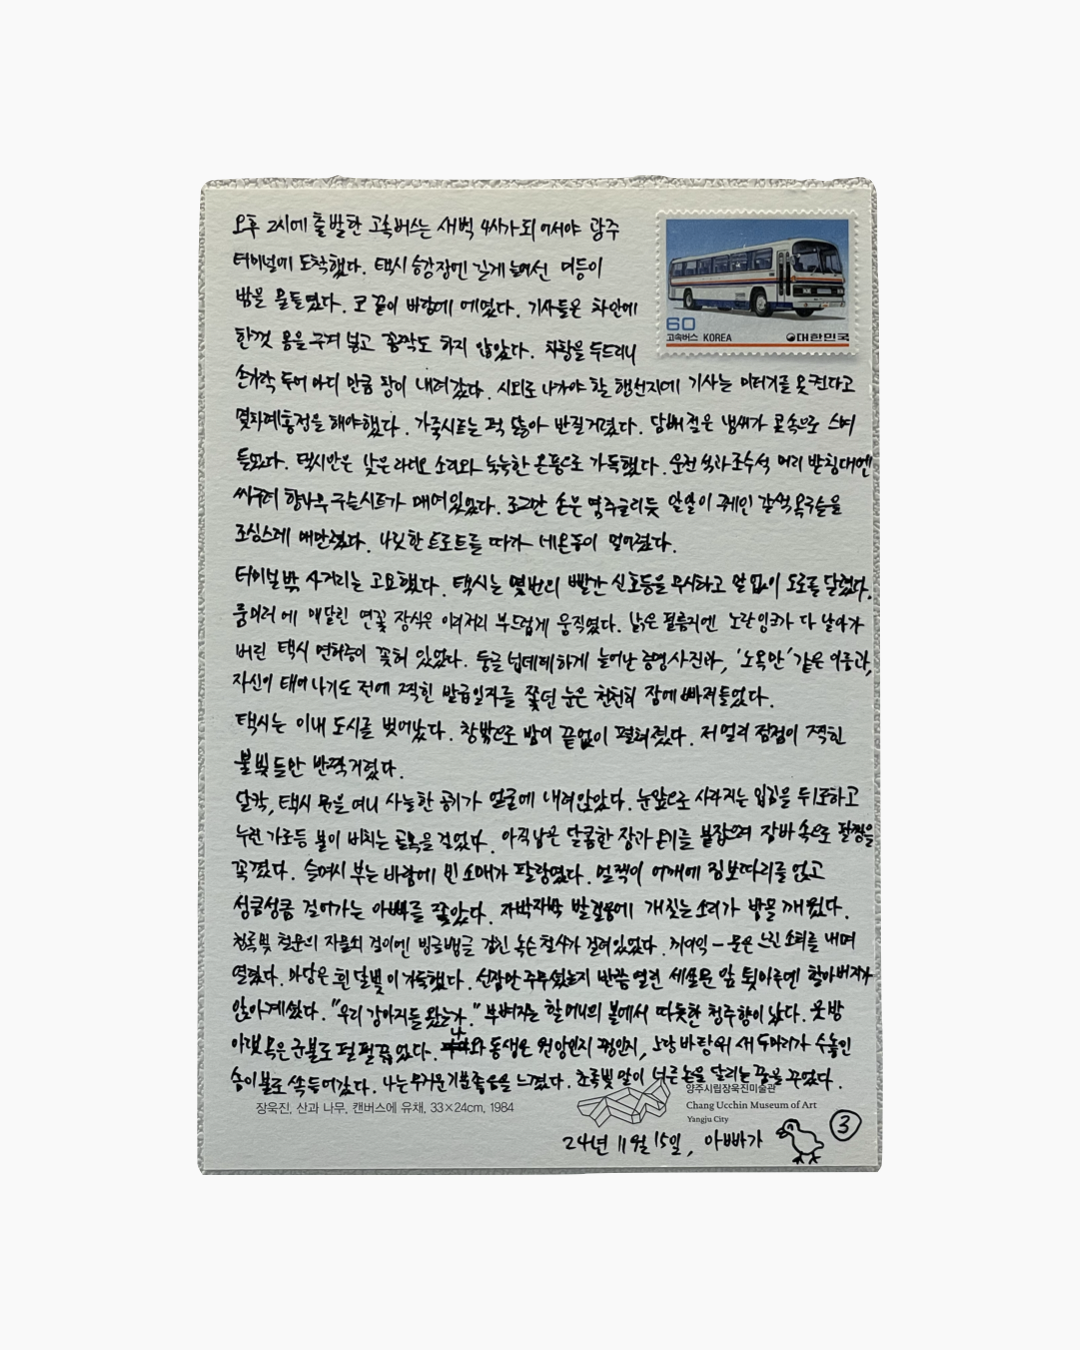 오후 2시에 출발한 고속버스는 새벽 4시가 되어서야 광주
터미널에 도착했다. 택시 승강장엔 길게 늘어선 미등이
밤을 물들였다. 코 끝이 바람에 에였다. 기사들은 차안에
한껏 몸을 구겨 넣고 꼼짝도 하지 않았다. 차창을 두드리니
손가락 두어 마디 만큼 창이 내려갔다. 시외로 나가야 할 행선지에 기사는 미터기를 못 켠다고
몇차례 흥정을 해야했다. 가죽시트는 퍽 닳아 반질거렸다. 담배 젖은 냄새가 콧속으로 스며
들었다. 택시안은 낮은 라디오 소리와 눅눅한 온풍으로 가득했다. 운전석과 조수석 머리 받침대엔
싸구려 향나무 구슬시트가 매여있었다. 조그만 손은 염주굴리듯 알알이 꿰인 갈색옥구슬을
조심스레 매만졌다. 나릿한 트로트를 따라 네온등이 멀어졌다.
터미널 밖 사거리는 고요했다. 택시는 몇번의 빨간 신호등을 무시하고 말 없이 도로를 달렸다.
룸미러에 매달린 연꽃 장식은 이리저리 부드럽게 움직였다. 낡은 필름지엔 노란잉크가 다 날아가
버린 택시 면허증이 꽂혀 있었다. 둥글 넙데데하게 늘어난 증명사진과, '노옥만' 같은 이름과,
자신이 태어나기도 전에 찍힌 발급일자를 쫓던 눈은 천천히 잠에 빠져들었다.
택시는 이내 도시를 벗어났다. 창밖으로 밤이 끝없이 펼쳐졌다. 저 멀리 점점이 찍힌
불빛들만 반짝거렸다.
달칵, 택시 문을 여니 사늘한 공기가 얼굴에 내려앉았다. 눈앞으로 사라지는 입김을 뒤로하고
누런 가로등 불이 비치는 골목을 걸었다. 아직 남은 달콤한 잠과 온기를 붙잡으며 잠바 속으로 팔짱을
꼭 꼈다. 슬며시 부는 바람에 빈 소매가 팔랑였다. 멀찍이 어깨에 짐보따리를 얹고
성큼성큼 걸어가는 아빠를 쫓았다. 자박자박 발걸음에 개짖는 소리가 밤을 깨웠다.
청록빛 철문의 자물쇠 걸이엔 빙글뱅글 감긴 녹슨 철사가 걸려있었다. 끼이익 - 문은 느린 소리를 내며
열렸다. 마당은 흰 달빛이 가득했다. 선잠만 주무셨는지 반쯤 열린 세살문 앞 툇마루엔 할아버지가
앉아계셨다. "우리 강아지들 왔는가." 부벼지는 할머니의 볼에서 따듯한 청주향이 났다. 웃방
아랫목은 군불로 펄펄 끓었다. 나와 동생은 원앙인지 꿩인지, 노랑 바탕위 새 두마리가 수놓인
솜이불로 쏙 들어갔다. 나는 무거운 기분좋음을 느꼈다. 초록빛 말이 너른 논을 달리는 꿈을 꾸었다.
24년 11월 15일, 아빠가 ③
60
고속버스 KOREA 대한민국
장욱진, 산과 나무, 캔버스에 유채, 33×24cm, 1984
양주시립장욱진미술관
Chang Ucchin Museum of Art
Yangju City